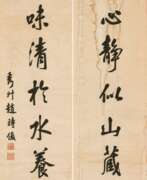 心静似山藏
味清於水養
秀竹趙